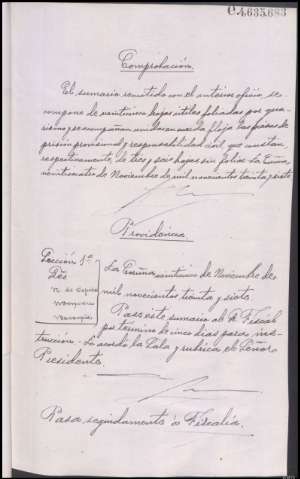 C.4.635.683
Comprobación.
El sumario remitido con el anterior oficio, se
compone de veintiuna hojas útiles foliadas por que
y se acompañan en cuerda floja las piezas de
prisión provisional y responsabilidad civil que constan
respectivamente, de tres y seis hojas sin foliar. La Coruña
veinticuatro de Noviembre de mil novecientos treinta y siete
Providencia
Sección 1ª
La Coruña veinticinco de Noviembre de
mil novecientos treinta y siete.
Pase este sumario al Sr. Fiscal
por termino de cinco dias para ins-
trucción. Lo acordó la Sala y rubrica el Señor
Presidente.
Pasa seguidamente á Fiscalía.